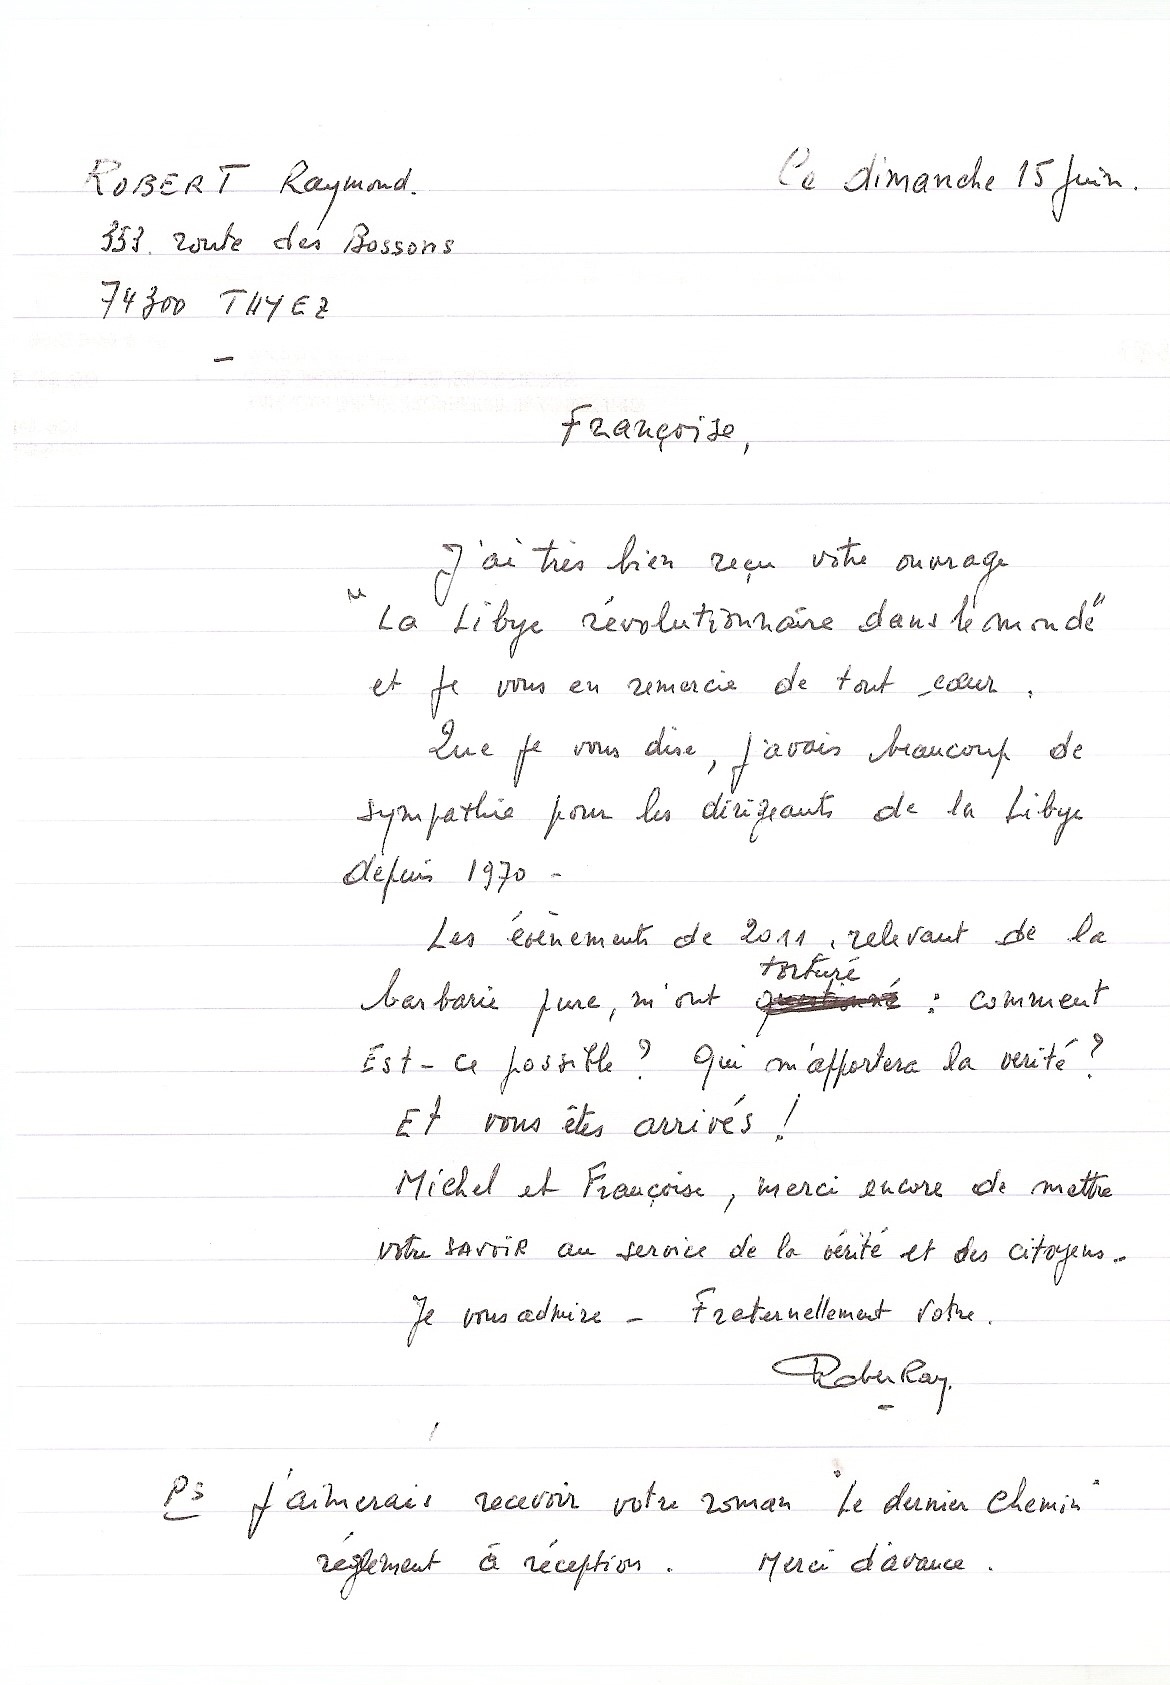 ROBERT Raymond.
Ce dimanche 15 Juin.
353. route des Bossons
74300 THYEZ
Françoise,
J'ai très bien reçu votre ouvrage
"La Libye révolutionnaire dans le monde"
et je vous en remercie de tout cœur.
Que je vous dise, j'avais beaucoup de
sympathie pour les dirigeants de la Libye
depuis 1970 -
Les évènements de 2011, relevant de la
torturé
barbarie pure, m'ont questionné : comment
Est-ce possible ? Qui m'apportera la vérité ?
Et vous êtes arrivés !
Michel et Françoise, merci encore de mettre
votre SAVOIR au service de la vérité et des citoyens.
Je vous admire - Fraternellement votre.
RoberRay.
PS J'aimerais recevoir votre roman "Le dernier Chemin"
réglement à réception. Merci d'avance.